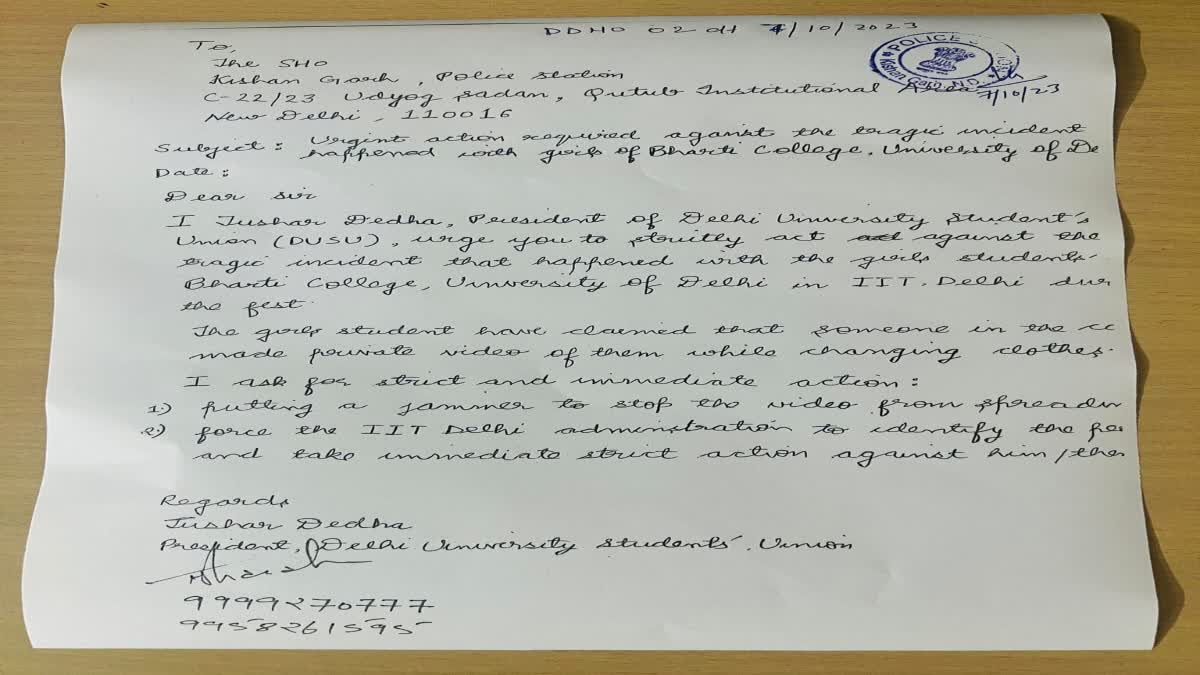 DDNO 02 dt 7/10/2023
POLICE
Kishan Garh, N.D.
7/10/23
To,
The SHO
Kishan Garh, Police Station
C-22/23 Udyog Sadan, Qutub Institutional Area
New Delhi, 110016
Subject: Urgint action required against the tragic incident
happened with girls of Bharti College, University of De
Date:
Dear sir
I Tushar Dedha, President of Delhi University Student's
Union (DUSU), urge you to strictly act against the
tragic incident that happened with the girls students.
Bharti College, University of Delhi in IIT. Delhi dur
the fest.
The girls student have claimed that someone in the
made private video of them while changing clothes.
I ask for strict and immediate action:
1.) putting a jammer to stop the video from spreadin
2.) force the IIT Delhi administration to identify the
and take immediate strict action against him/the
Regards
Tushar Dedha
President, Delhi University Students'. Union
9999270777
9958261595